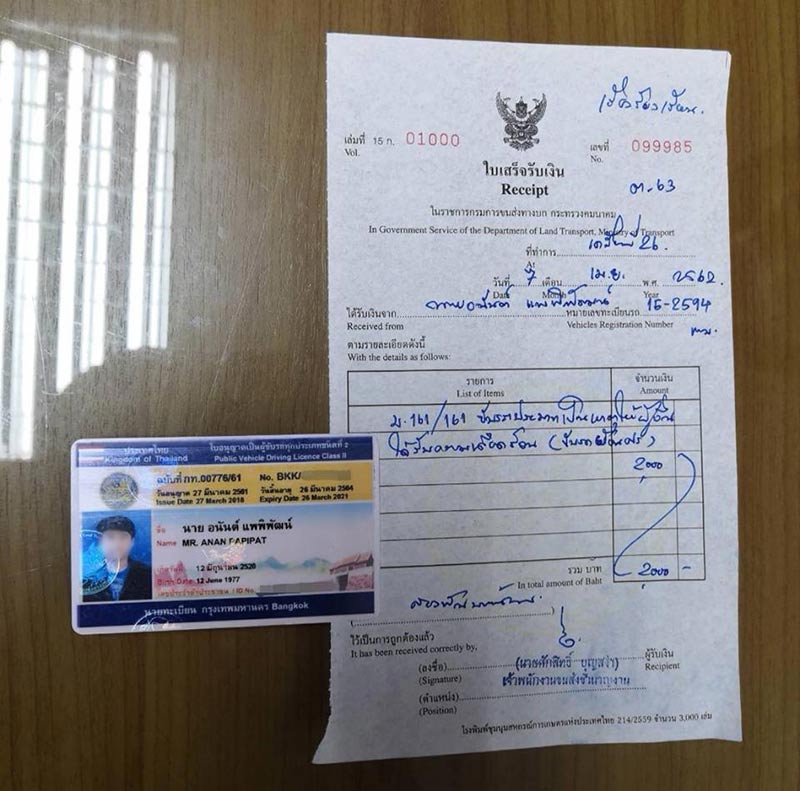 เล่มที่ 15 ก. 01000
Vol.
เลขที่ 099985
No.
ใบเสร็จรับเงิน
Receipt
๓-63
ในราชการกรมการขนส่งทางบก กระทรวงคมนาคม
In Government Service of the Department of Land Transport, Ministry of Transport
ที่ทำการ
At
วันที่ 7 เดือน เม.ย. พ.ศ. 2562
Date Month Year
ได้รับเงินจาก นายอนันต์ แพพิพัฒน์ หมายเลขทะเบียนรถ 15-2594
Received from Vehicles Registration Number
กทม.
ตามรายละเอียดดังนี้
With the details as follows:
รายการ จำนวนเงิน
List of Items Amount
ม.161/161 ขับรถประมาทเป็นเหตุให้ผู้อื่น
ได้รับความเดือดร้อน
2000
รวม บาท 2000 -
In total amount of Baht
ไว้เป็นการถูกต้องแล้ว
It has been received correctly by,
(ลงชื่อ) ผู้รับเงิน
(Signature) Recipient
(นายศักสิทธิ์ บุญสว่าง)
เจ้าพนักงานขนส่งชำนาญงาน
(ตำแหน่ง)
(Position)
โรงพิมพ์ชุมนุมสหกรณ์การเกษตรแห่งประเทศไทย 214/2559 จำนวน 3,000 เล่ม
ประเทศไทย ใบอนุญาตเป็นผู้ขับรถทุกประเภทชนิดที่ 2
Kingdom of Thailand Public Vehicle Driving Licence Class II
ฉบับที่ กท.00776/61 No. BKK/
วันอนุญาต 27 มีนาคม 2561 วันสิ้นอายุ 26 มีนาคม 2564
Issue Date 27 March 2018 Expiry Date 26 March 2021
ชื่อ นาย อนันต์ แพพิพัฒน์
Name MR. ANAN PAPIPAT
เกิดวันที่ 12 มิถุนายน 2520
Birth Date 12 June 1977
เลขประจำตัวประชาชน / ID No.
นายทะเบียน กรุงเทพมหานคร Bangkok